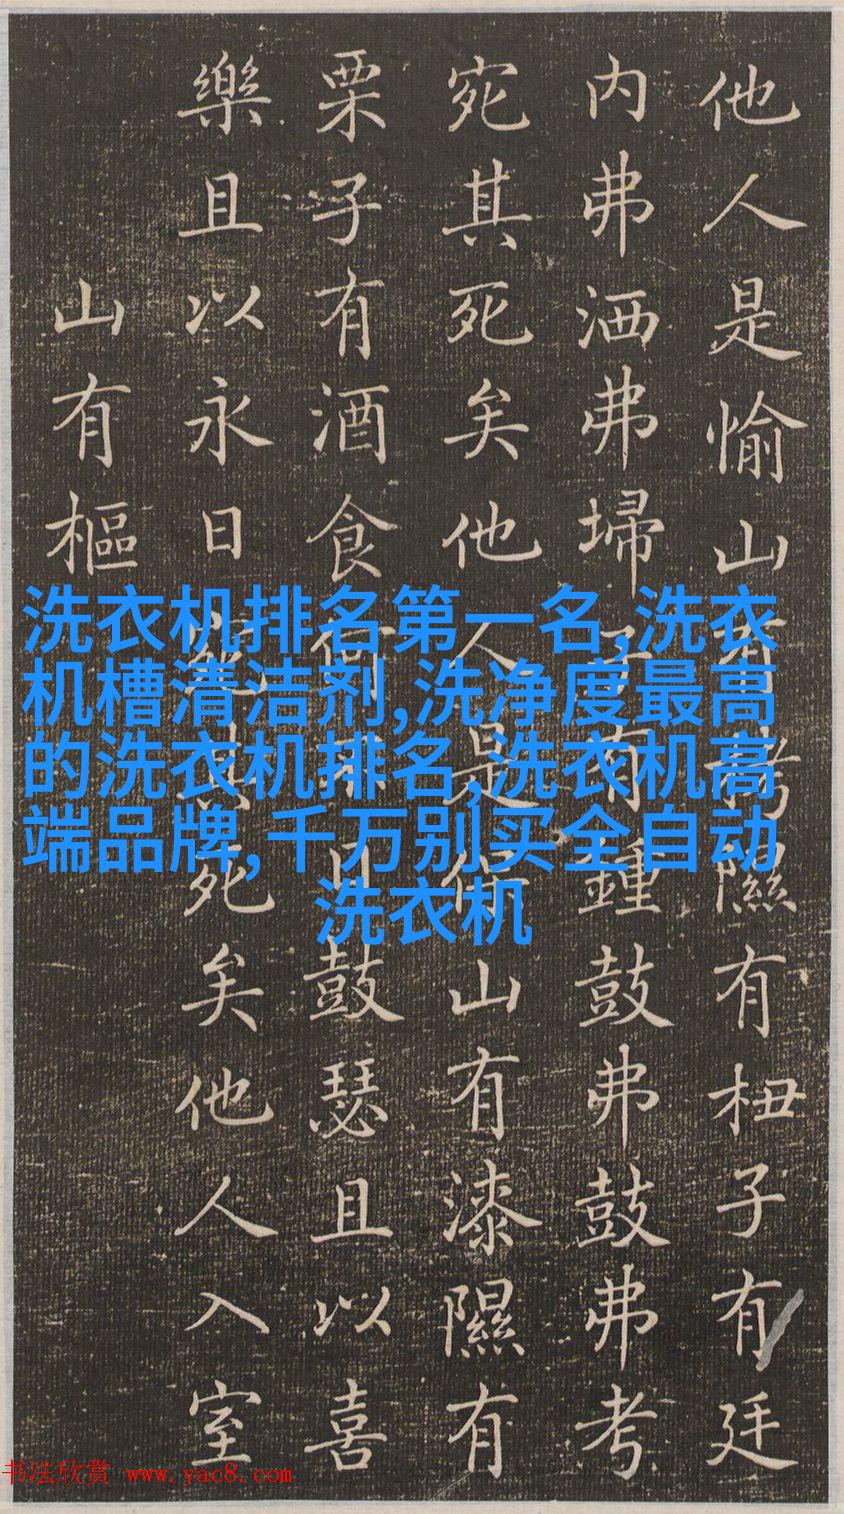 他人是愉山有栲隰有杻子有廷
内弗洒弗埽子有鍾鼓弗鼓弗考
宛其死矣他人是保山有漆隰有
栗子有酒食何不日鼓瑟且以喜
樂且以永日宛其死矣他人入室
山有樞
洗衣机排名第一名,洗衣
机槽清洁剂,洗净度最高
的洗衣机排名,洗衣机高
端品牌,千万别买全自动
洗衣机
书法欣赏 www.yac8.com